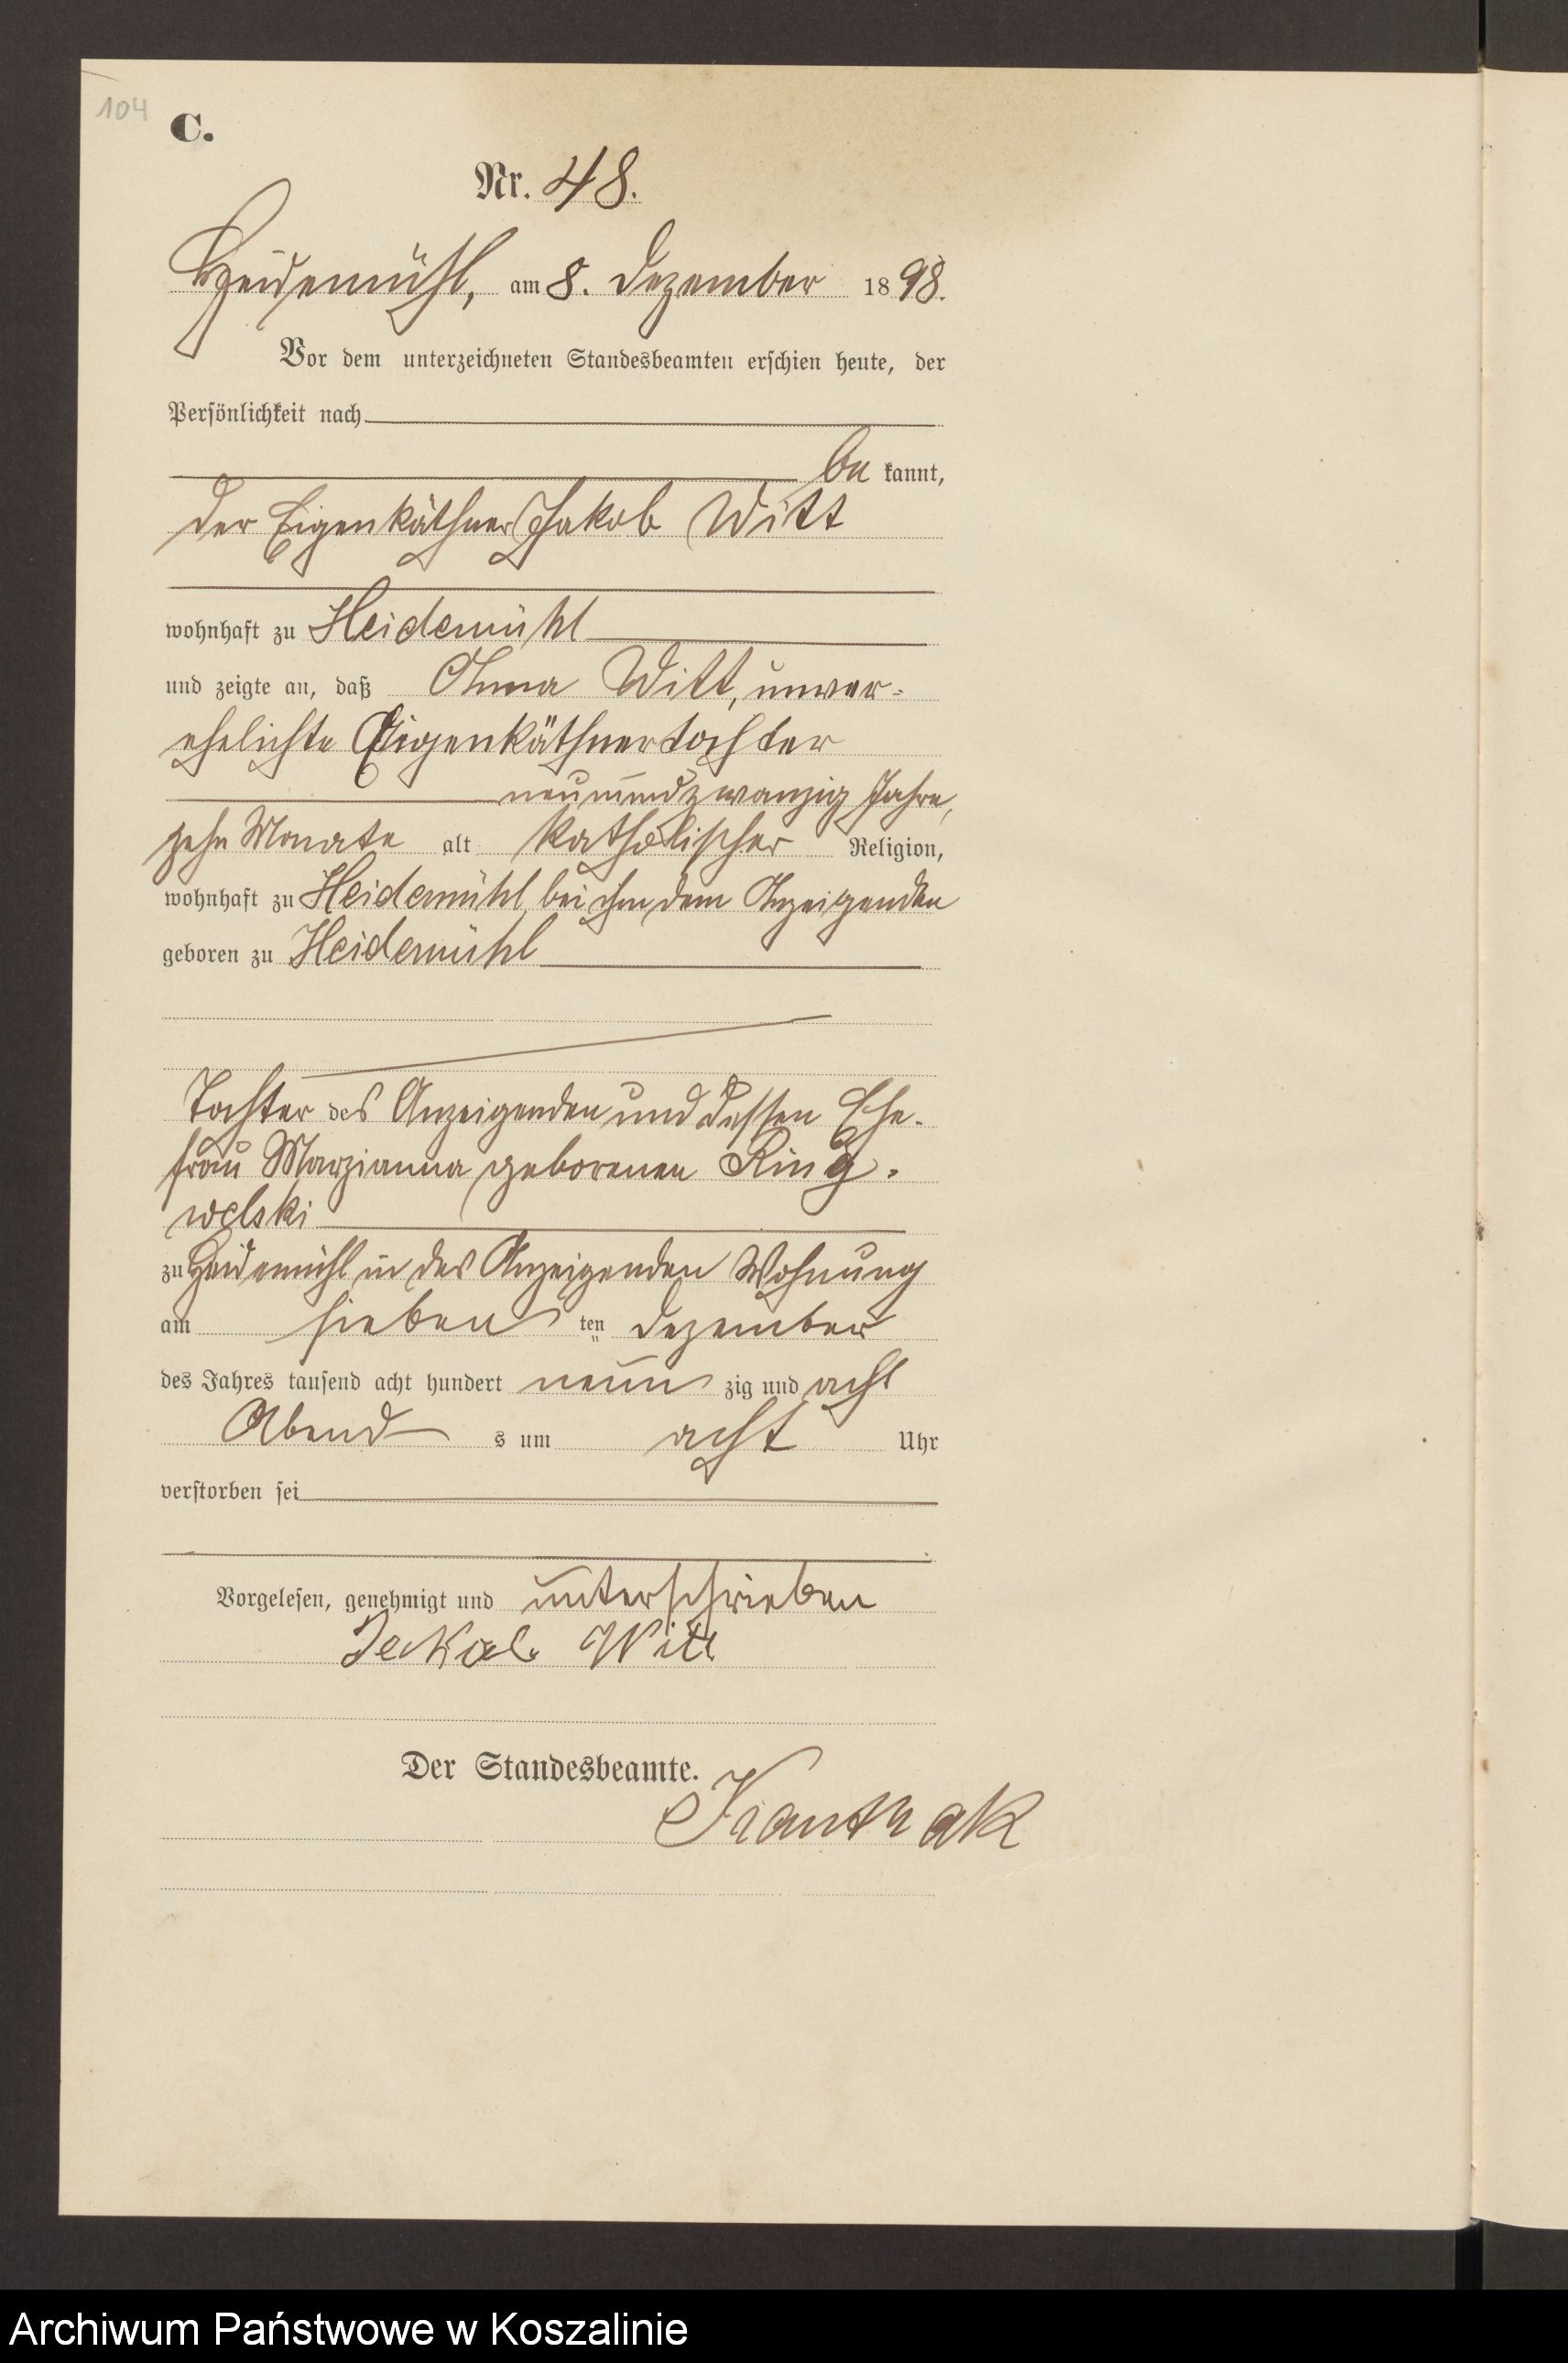 104
C.
Nr. 48.
Heidemühl, am 8. Dezember 1898.
Vor dem unterzeichneten Standesbeamten erschien heute, der
Persönlichkeit nach
be kannt,
der Eigenkäthner Jakob Witt
wohnhaft zu Heidemühl
und zeigte an, daß Anna Witt, unver-
ehelichte Eigenkäthnertochter
neunundzwanzig Jahre,
zehn Monate alt katholischer Religion,
wohnhaft zu Heidemühl, bei ihm dem Anzeigenden
geboren zu Heidemühl
Tochter des Anzeigenden und dessen Ehe-
frau Marzianna geborenen Ring-
welski
zu Heidemühl in des Anzeigenden Wohnung
am sieben ten Dezember
des Jahres tausend acht hundert neun zig und acht
Abend s um acht Uhr
verstorben sei
Vorgelesen, genehmigt und unterschrieben
Jakob Witt
Der Standesbeamte.
Archiwum Państwowe w Koszalinie